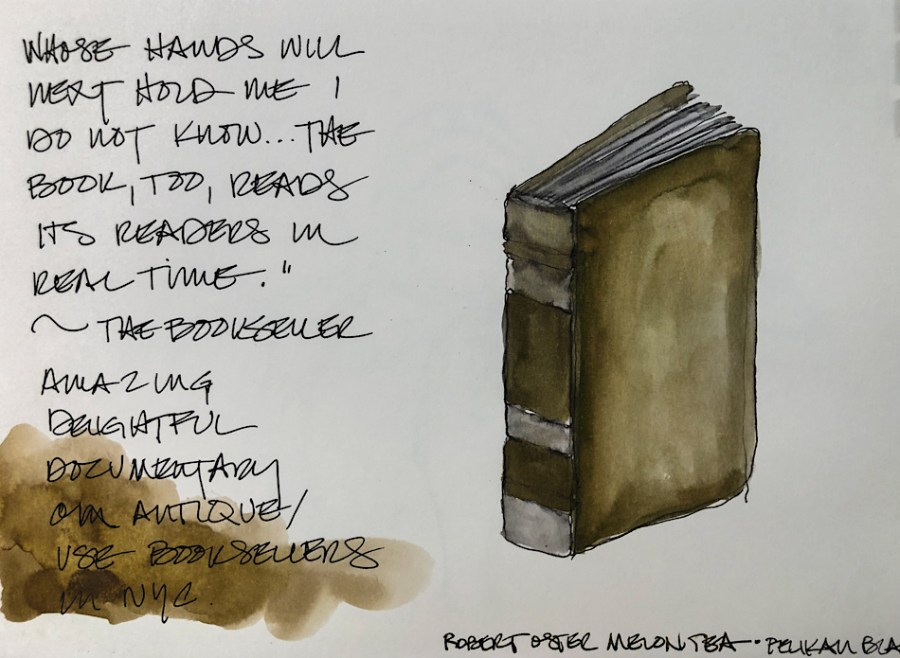 WHOSE HANDS WILL
NEXT HOLD ME I
DO NOT KNOW...THE
BOOK, TOO, READS
ITS READERS IN
REAL TIME."
~ THE BOOKSELLER
AMAZING
DELIGHTFUL
DOCUMENTARY
ON ANTIQUE/
USE BOOKSELLERS
IN NYC.
ROBERT OSTER MELON TEA • PELIKAN BLA